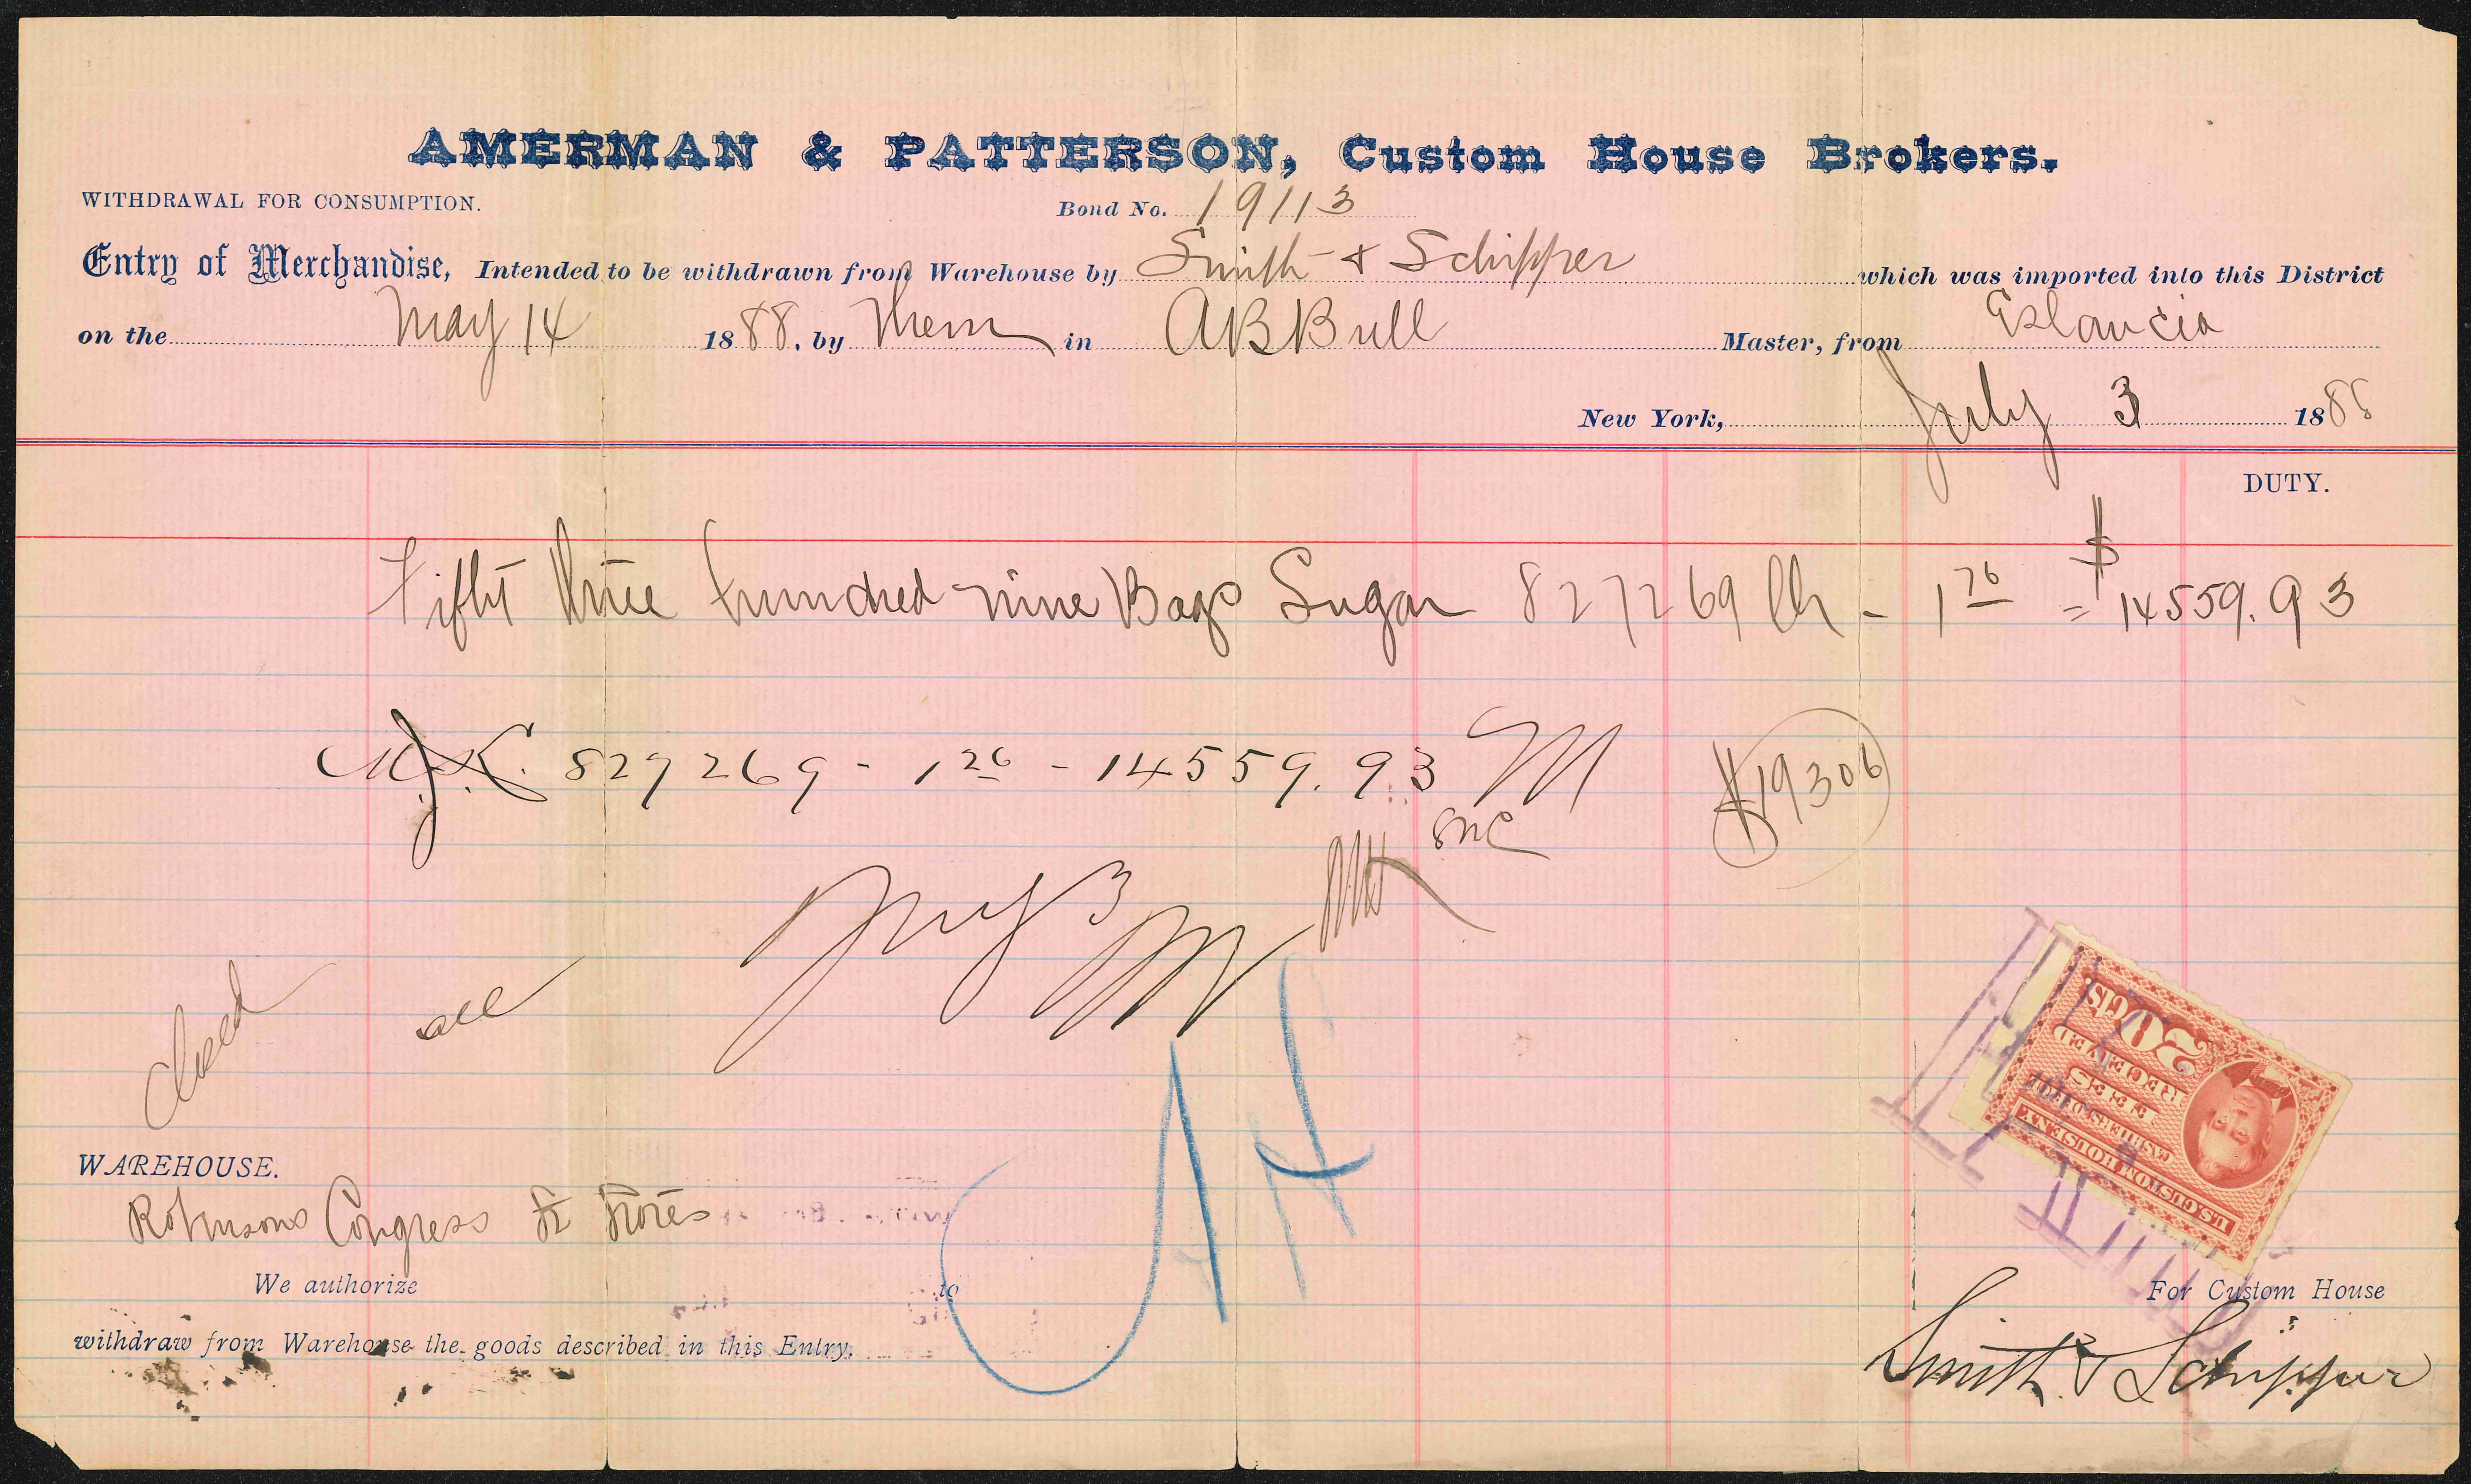 AMERMAN & PATTERSON, Custom House Brokers.
WITHDRAWAL FOR CONSUMPTION.
Bond No. 19113
Entry of Merchandise, Intended to be withdrawn from Warehouse by Smith & Schipper which was imported into this District
on the May 14 1888, by Them in ABBull Master, from
New York, July 3 1888
DUTY.
Fifty three hundred nine Bags Sugar 827269 lbs - 1 76 = $14559.93
827269 - 1 76 - 14559.93
$19306
July 3
closed all
WAREHOUSE.
Robinsons Congress St Stores
We authorize to
withdraw from Warehouse the goods described in this Entry.
20cts
RECEIVED
FEES
CASHIERS OFFICE
U.S. CUSTOM HOUSE N.Y.
For Custom House
Smith & Schipper